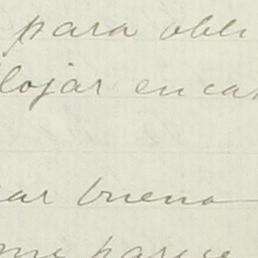 para obli
lojar en ca
ar bueno
me parece